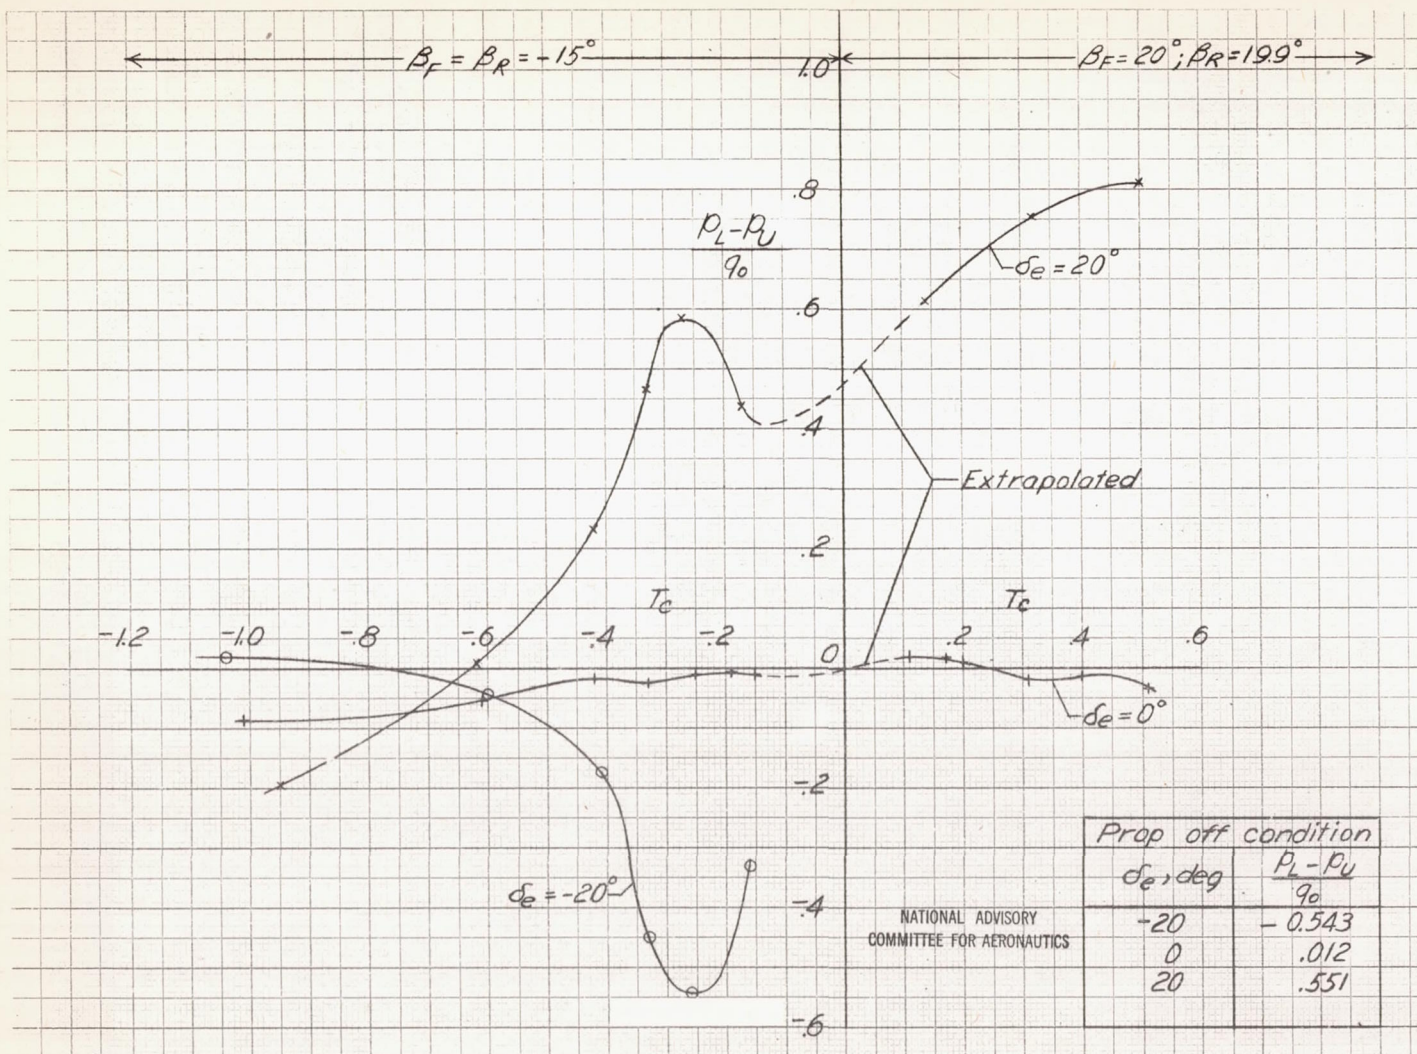 β_F = β_R = -15°
β_F = 20°; β_R = 19.9°
1.0
.8
p_L - p_U
q_0
δ_e = 20°
.6
.4
Extrapolated
.2
T_c
T_c
-1.2 -1.0 -.8 -.6 -.4 -.2 0 .2 .4 .6
δ_e = 0°
-.2
δ_e = -20°
-.4
-.6
NATIONAL ADVISORY
COMMITTEE FOR AERONAUTICS
Prop off condition
δ_e, deg
p_L - p_U
q_0
-20 - 0.543
0 .012
20 .551